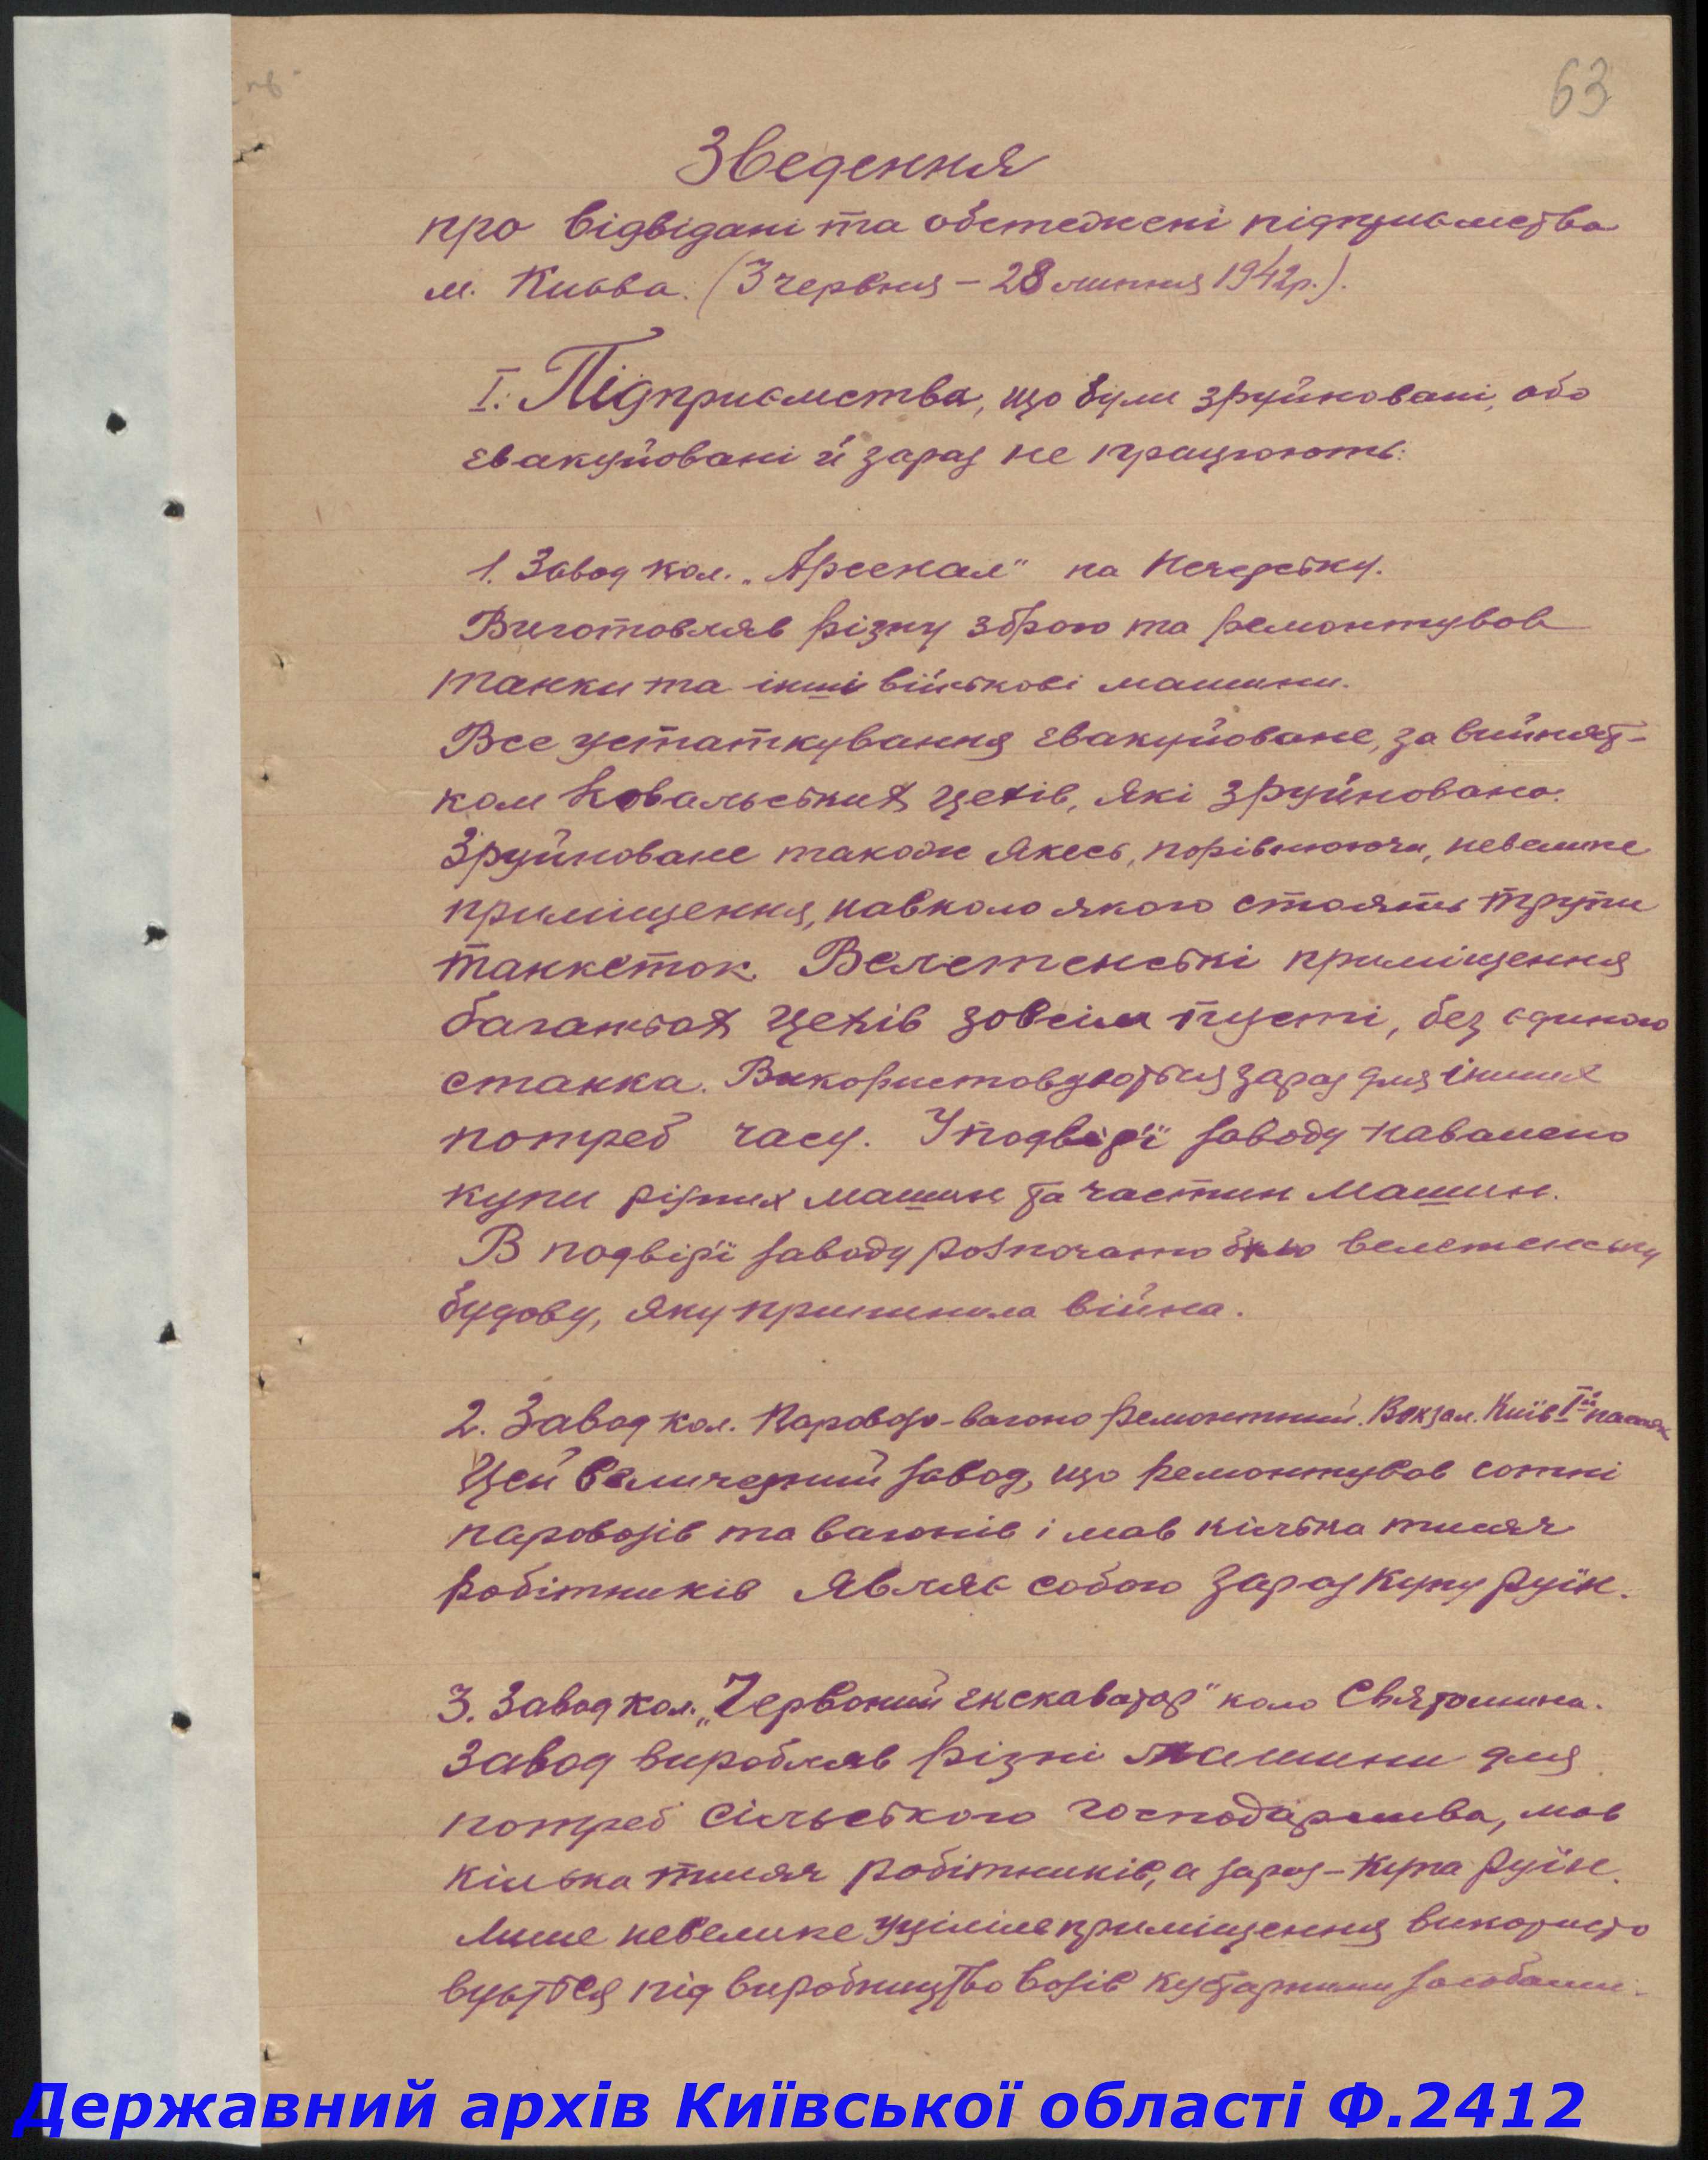 63
Зведення
про відвідані та обстежені підприємства
м. Києва. (3 червня – 28 липня 1942р.).
I. Підприємства, що були зруйновані, або
евакуйовані й зараз не працюють:
1. Завод кол. „Арсенал" на Печерську.
Виготовляв різну зброю та ремонтував
танки та інші військові машини.
Все устаткування евакуйоване, за винят-
ком ковальських цехів, які зруйновано.
Зруйноване також якесь, порівнюючи, невелике
приміщення, навколо якого стоять трупи
танкеток. Велетенські приміщення
багатьох цехів зовсім пусті, без єдиного
станка. Використовуються зараз для інших
потреб часу. У подвір'ї заводу навалено
купи різних машин та частин машин.
В подвір'ї заводу розпочато було велетенську
будову, яку припинила війна.
2. Завод кол. Паровозо-вагоно ремонтний. Вокзал. Київ Iй пасаж
Цей величезний завод, що ремонтував сотні
паровозів та вагонів і мав кілька тисяч
робітників являє собою зараз купу руїн.
3. Завод кол. „Червоний екскаватор" коло Святошина.
Завод виробляв різні машини для
потреб сільського господарства, мав
кілька тисяч робітників, а зараз – купа руїн.
Лише невелике уціліле приміщення використо
вується під виробництво возів кустарними засобами.
Державний архів Київської області Ф.2412